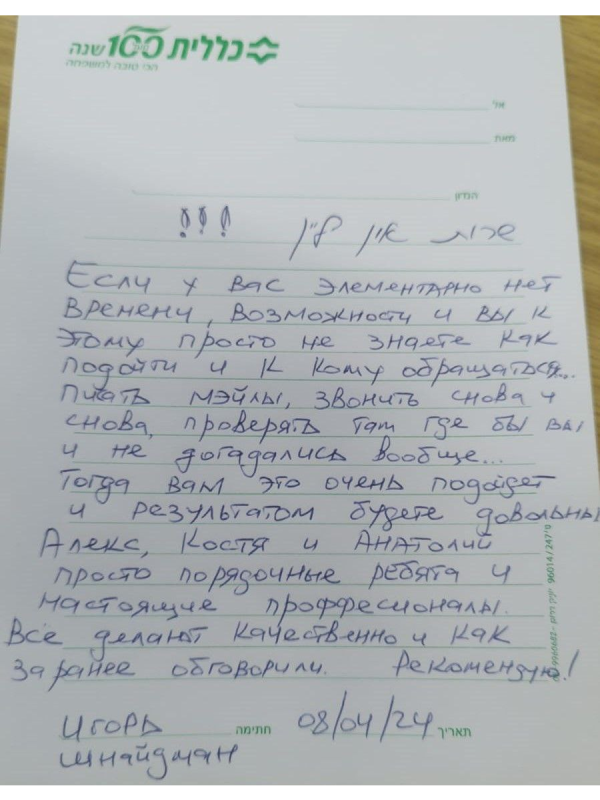 כללית 100 שנה
הכי טובה למשפחה
אל
מאת
הנדון
שרות און ליין !!!
Если у вас элементарно нет
времени, возможности и вы к
этому просто не знаете как
подойти и к кому обращаться...
писать мэйлы, звонить снова и
снова, проверять там где бы вы
и не догадались вообще...
Тогда вам это очень подойдет
и результатом будете довольны
Алекс, Костя и Анатолий
просто порядочные ребята и
настоящие проффесионалы.
Всё делают качественно и как
заранее обговорили. Рекомендую!
Игорь חתימה 08/04/24 תאריך
Шнайдман